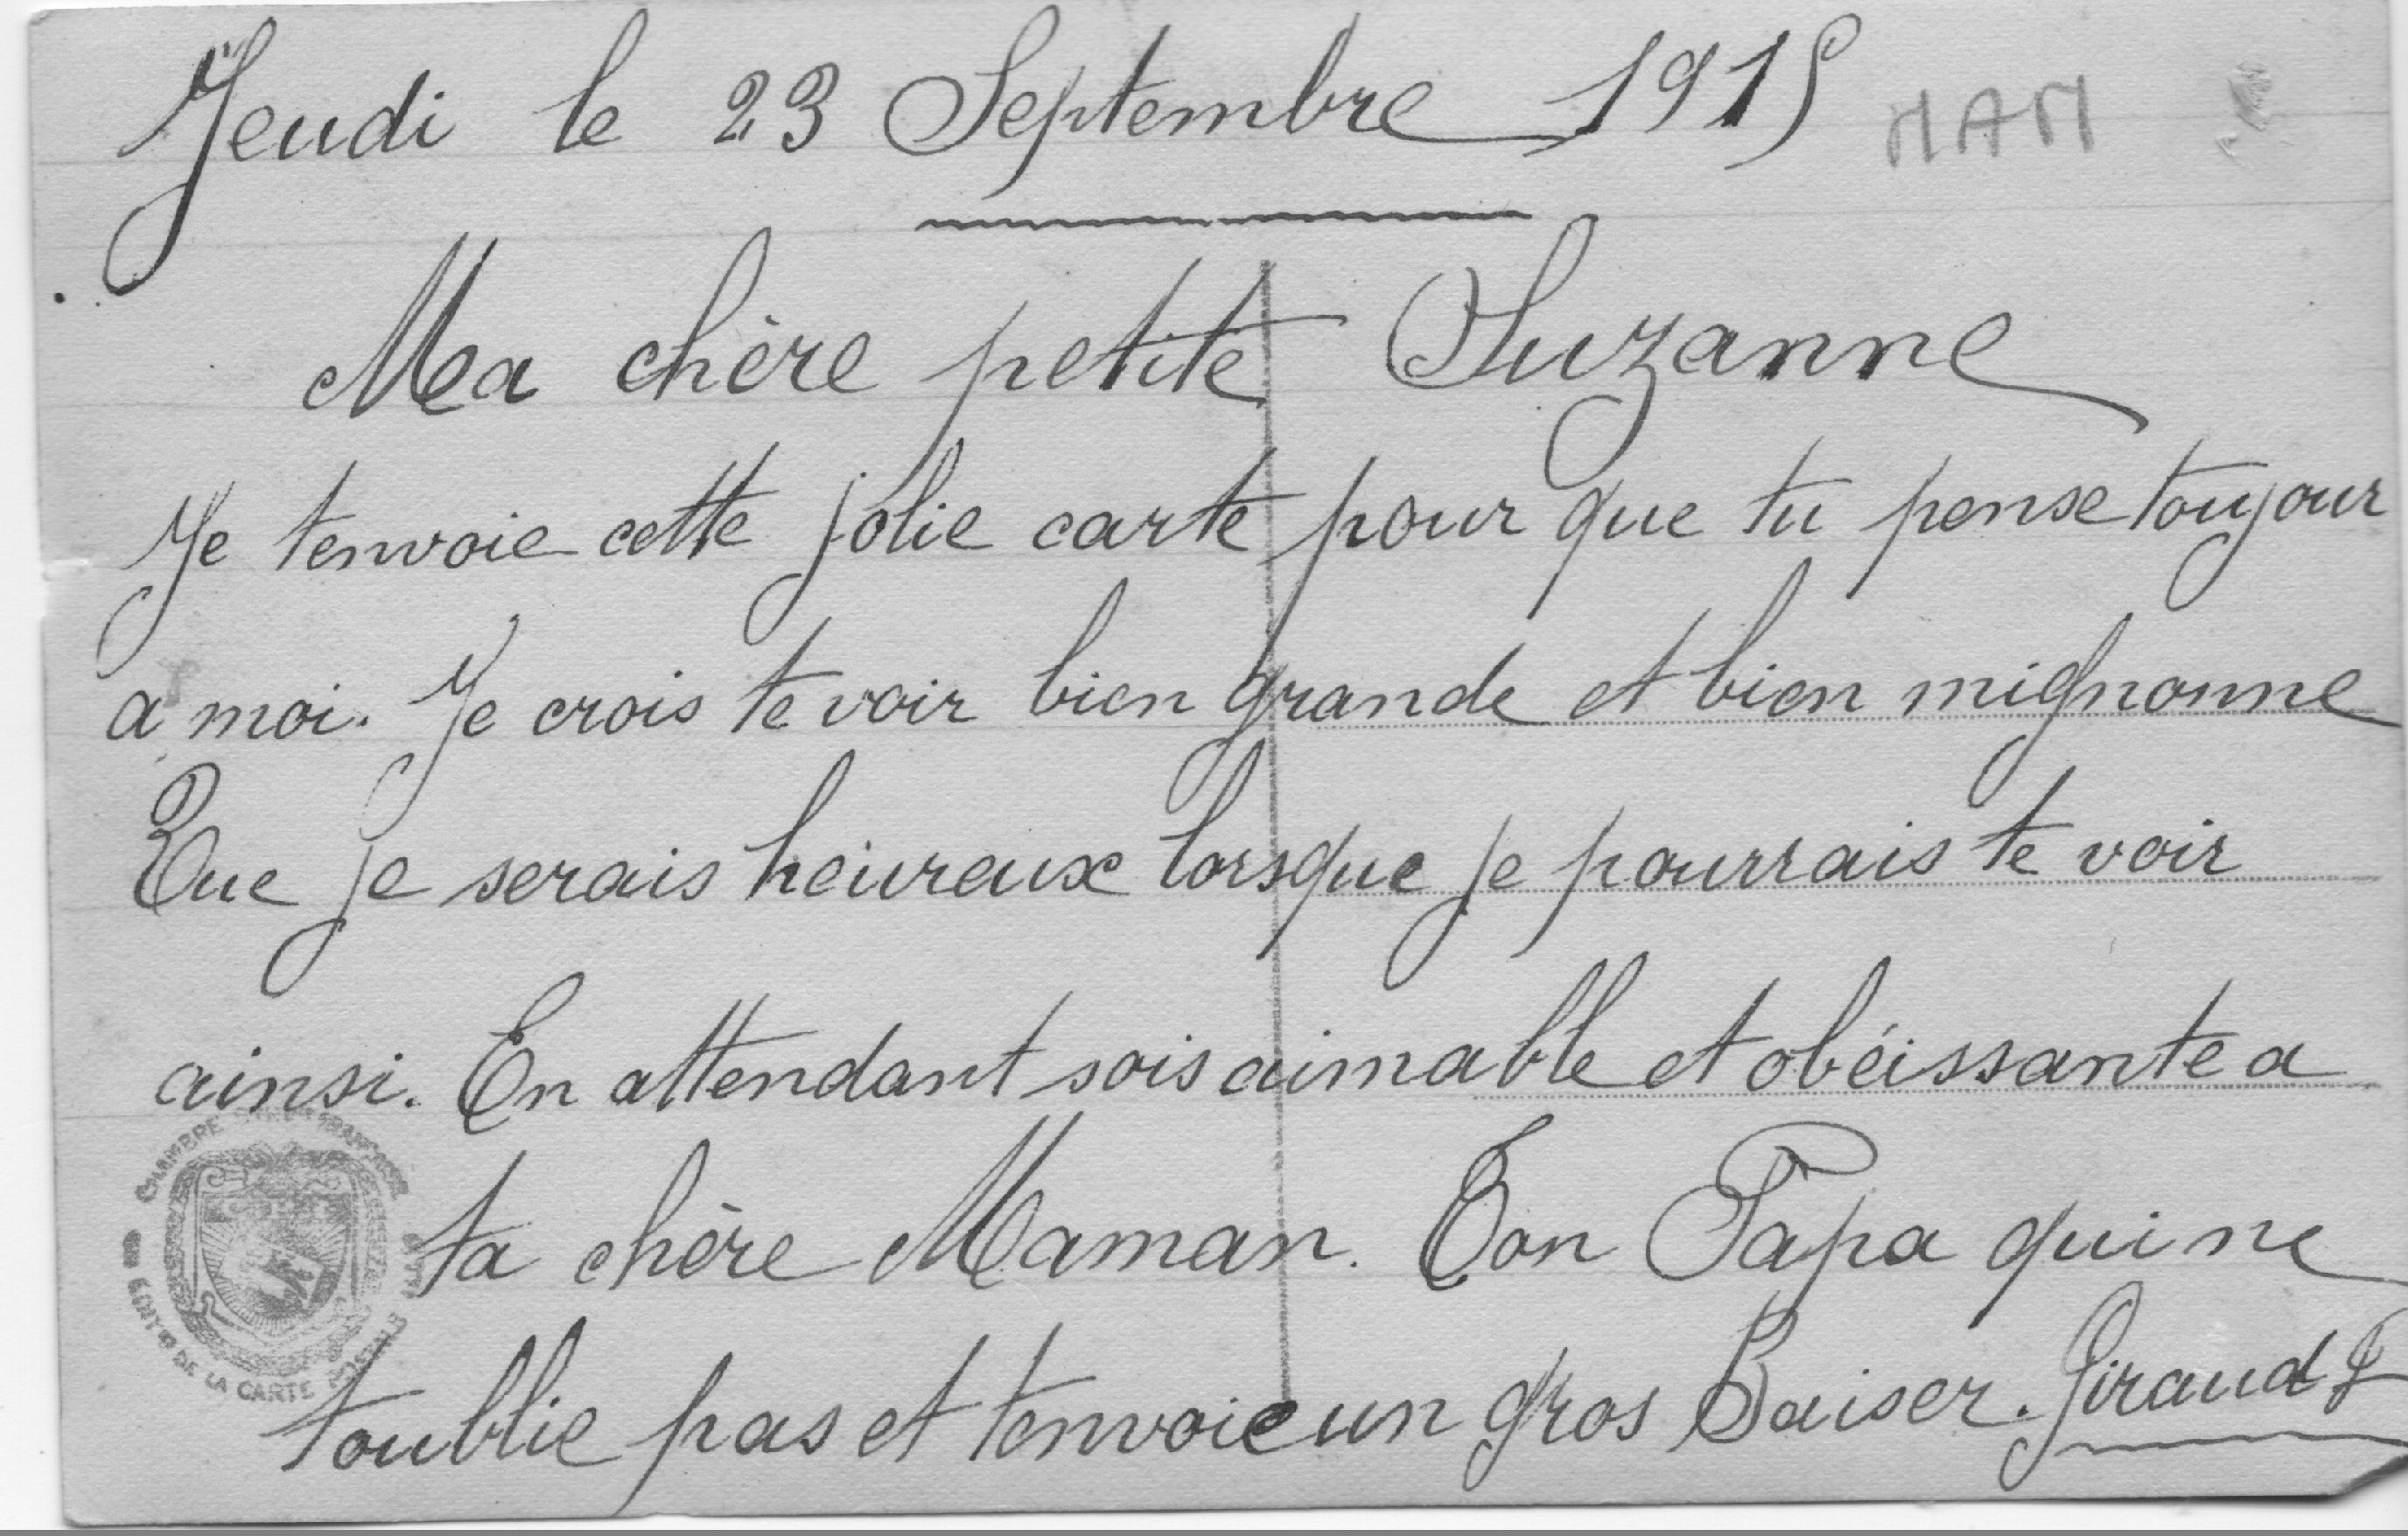 Jeudi le 23 Septembre 1915
MAM
Ma chère petite Suzanne
Je tenvoie cette jolie carte pour que tu pense toujour
a moi. Je crois te voir bien grande et bien mignonne
Que je serais heureux lorsque je pourrais te voir
ainsi. En attendant sois aimable et obéissante a
ta chère Maman. Ton Papa qui ne
toublie pas et tenvoie un gros Baiser. Giraud
CHAMBRE FRANÇAISE
DE LA CARTE POSTALE